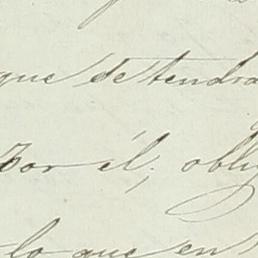 que se tendra
Por él; oblig
lo que en